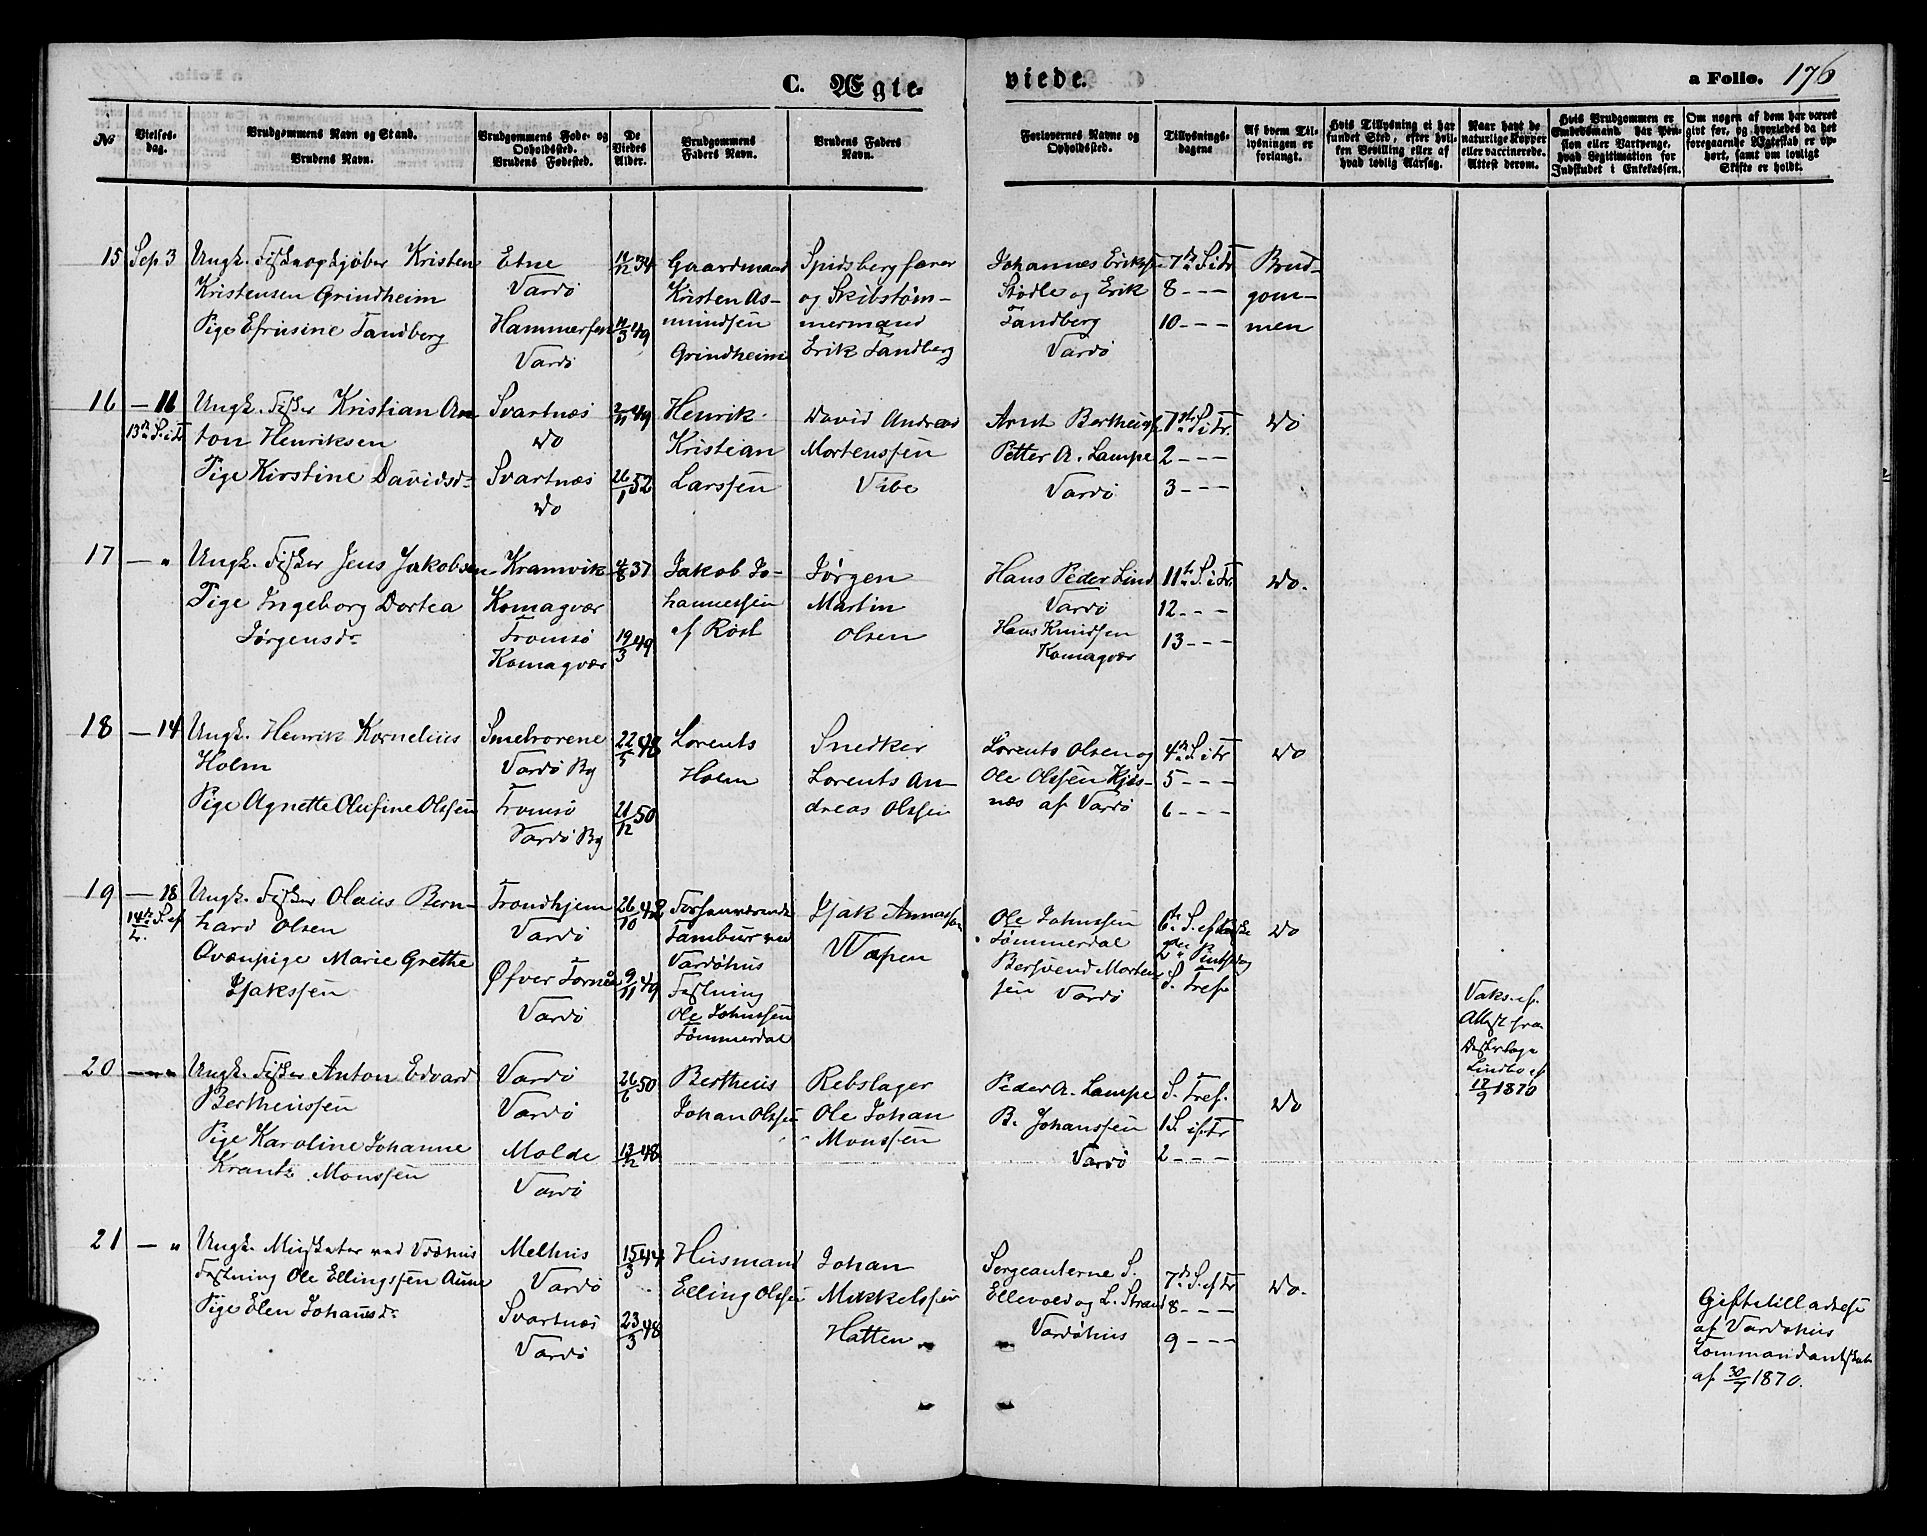 C. Ægte-
viede.
a Folio. 176
No
Vielses-
dag.
Brudgommens Navn og Stand.
Brudens Navn.
Brudgommens Føde- og
Opholdssted.
Brudens Fødested.
De
Viedes
Alder.
Brudgommens
Faders Navn.
Brudens Faders
Navn.
Forlovernes Navne og
Opholdssted.
Tillysnings-
dagene
Af hvem Til-
lysningen er
forlangt.
Hvis Tillysning ei har
fundet Sted, efter hvil-
ken Bevilling eller af
hvad lovlig Aarsag.
Naar havt de
naturlige Kopper
eller vaccinerede.
Attest derom.
Hvis Brudgommen er
Embedsmand, har Pen-
sion eller Vartpenge,
hvad Legitimation for
Indskudet i Enkekassen.
Om nogen af dem har været
givt før, og hvorledes da det
foregaaende Ægteskab er op-
hørt, samt om lovligt
Skifte er holdt.
15
Sep 3
Ungk. Fiskeopkjøber Kristen
Kristensen Grindheim
Pige Efrusine Tandberg
Etne
Vardö
Hammerfest
Vardö
34
3 49
Gaardmand
Kristen As-
mundsen
Grindheim
Spidsbergfarer
og Skibstøm-
mermand
Erik Tandberg
Johannes Eriksen
Stödle og Erik
Tandberg
Vardö
7de S. i Tr
8 - - -
10 - - -
Brud-
gom-
men
16
— 11
13de S. i Tr
Ungk. Fisker Kristian An-
ton Henriksen
Pige Kirstine Davidsdr
Svartnæs
do
Svartnæs
do
2/11 49
26/1 52
Henrik
Kristian
Larssen
David Andreas
Mortenssen
Vibe
Arnt Bertheussen
Petter A. Lampe
Vardö
1ste S. i Tr.
2 - - -
3 - - -
do
17
— "
Ungk. Fisker Jens Jakobsen
Pige Ingeborg Dortea
Jørgensdr
Kramvik
Komagvær
Tromsö
Komagvær
37
19/3 49
Jakob Jo-
hannessen
af Röst
Jørgen
Martin
Olsen
Hans Peder Lind
Vardö
Hans Knudsen
Komagvær
11te S. i Tr
12 - - -
13 - - -
do.
18
— 14
Ungk. Henrik Kornelius
Holm
Pige Agnette Olufine Olssen
Smelrorene
Vardö By
Tromsö
Vardö By
22/5 48
21/12 50
Lorents
Holm
Snedker
Lorents An-
dreas Olssen
Lorents Olsen og
Ole Olssen Kjös-
næs af Vardö
4de S. i Tr
5 - - -
6 - - -
do
19
— 18
14de S. ef
Tr.
Ungk. Fisker Olaus Bern-
hard Olsen
Qvænpige Marie Grethe
Isakssen
Trondhjem
Vardö
Øfver Torneå
Vardö
26/10 42
9/11 49
Forhenværende
Tambur ved
Vardöhus
Festning
Ole Johnssen
Tömmerdal
Isak Annassen
Wæpen
Ole Johnssen
Tömmerdal
Bersvend Morten-
sen Vardö
6te S. ef Paaske
2den Pintsedag
S. Tref.
do
Vaks. ef.
Attest fra
Distr.læge
Lindboe af
17/9 1870
20
— " "
Ungk. Fisker Anton Edvard
Bertheussen
Pige Karoline Johanne
Krantz Monssen
Vardö
Vardö
Molde
Vardö
26/6 50
13/12 48
Bertheus
Johan Olssen
Rebslager
Ole Johan
Monssen
Peder A. Lampe
B. Johanssen
Vardö
S. Tref.
1 S. i Tr
2 - - -
do
21
— "
Ungk. Musketer ved Vdöhus
Festning Ole Ellingssen Aune
Pige Elen Johansdr
Melhus
Vardö
Svartnæs
Vardö
15/3 44
23/3 48
Husmand
Elling Olssen
Johan
Mikkelssen
Hatten
Sergeanterne S.
Ellevold og L. Strand
Vardöhus
7de S. ef Tr
8 - - -
9 - - -
do.
Giftetilladelse
af Vardöhus
Kommandantskab
af 30/7 1870.